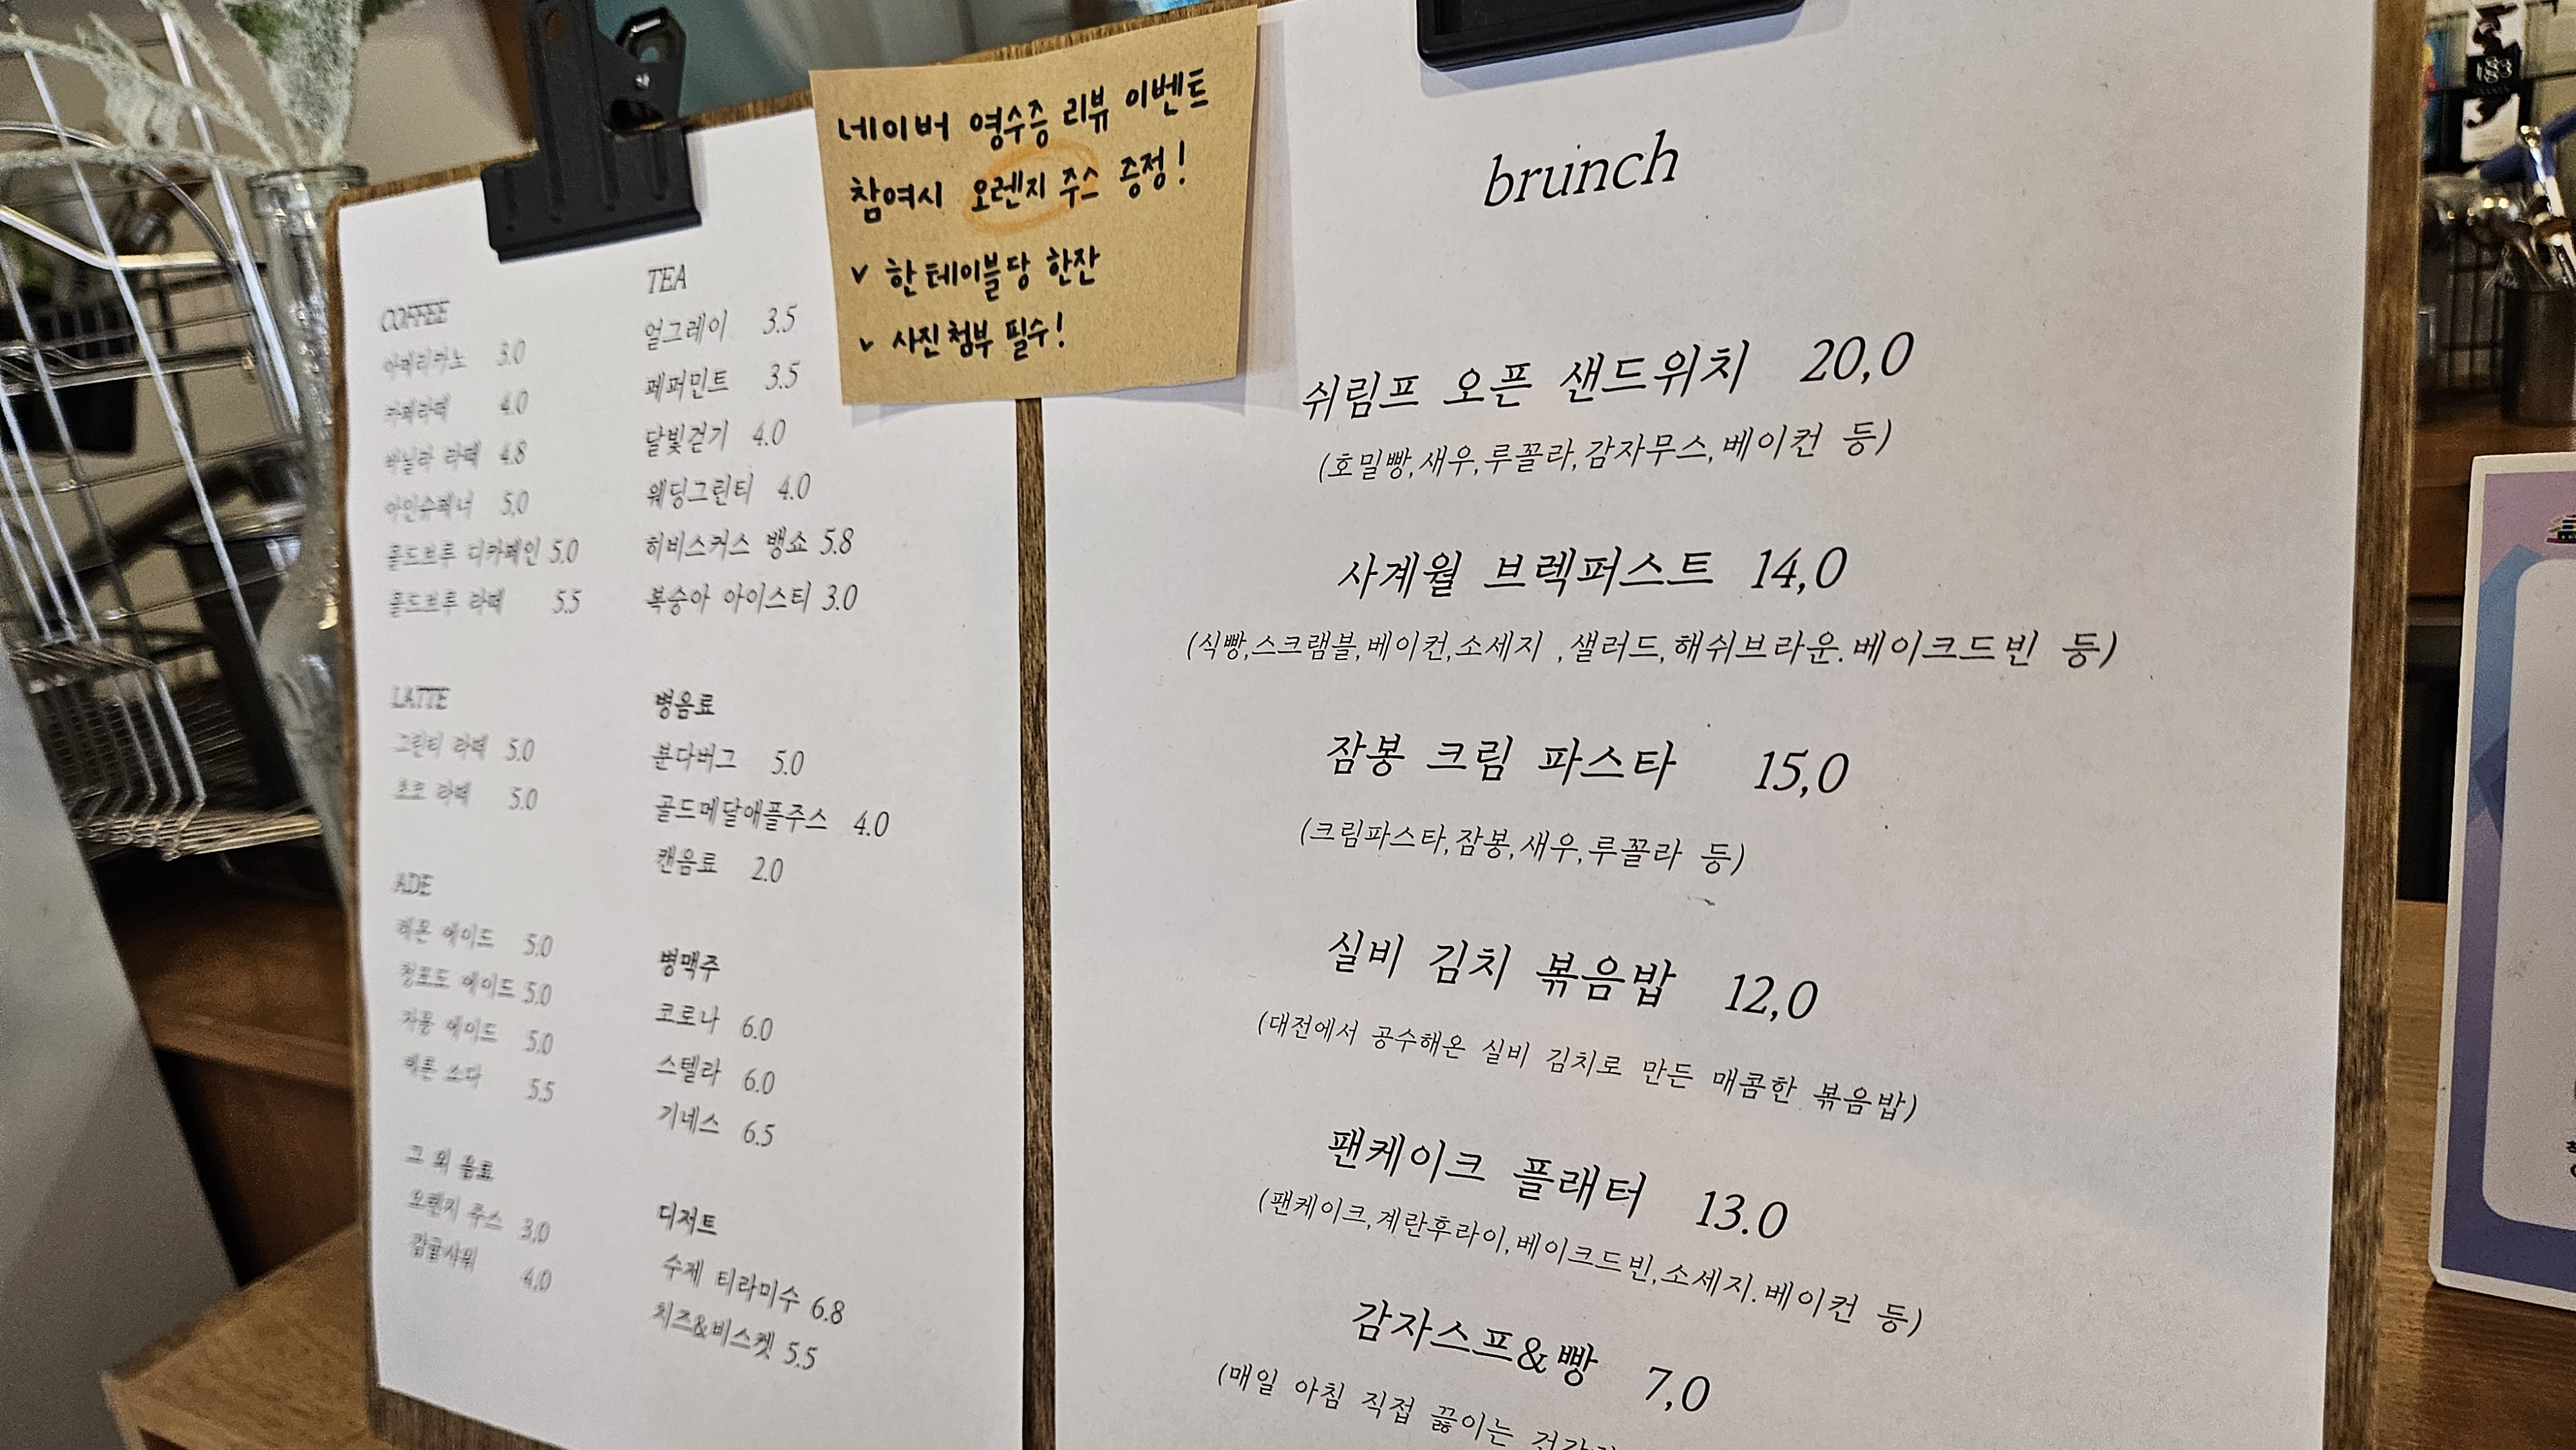 네이버 영수증 리뷰 이벤트
참여시 오렌지 주스 증정!
v 한 테이블당 한잔
v 사진 첨부 필수!
COFFEE
아메리카노 3.0
카페라떼 4.0
바닐라 라떼 4.8
아인슈페너 5,0
콜드브루 디카페인 5.0
콜드브루 라떼 5.5
LATTE
그린티 라떼 5.0
초코 라떼 5.0
ADE
레몬 에이드 5.0
청포도 에이드 5.0
자몽 에이드 5.0
베른 소다 5.5
그 외 음료
오렌지 주스 3,0
감귤사워 4,0
TEA
얼그레이 3.5
페퍼민트 3.5
달빛걷기 4.0
웨딩그린티 4.0
히비스커스 뱅쇼 5.8
복숭아 아이스티 3.0
병음료
분다버그 5.0
골드메달애플주스 4.0
캔음료 2.0
병맥주
코로나 6.0
스텔라 6.0
기네스 6.5
디저트
수제 티라미수 6.8
치즈&비스켓 5.5
brunch
쉬림프 오픈 샌드위치 20,0
(호밀빵,새우,루꼴라,감자무스,베이컨 등)
사계월 브렉퍼스트 14,0
(식빵,스크램블,베이컨,소세지 ,샐러드,해쉬브라운.베이크드빈 등)
잠봉 크림 파스타 15,0
(크림파스타,잠봉,새우,루꼴라 등)
실비 김치 볶음밥 12,0
(대전에서 공수해온 실비 김치로 만든 매콤한 볶음밥)
팬케이크 플래터 13.0
(팬케이크,계란후라이,베이크드빈,소세지.베이컨 등)
감자스프&빵 7,0
(매일 아침 직접 끓이는